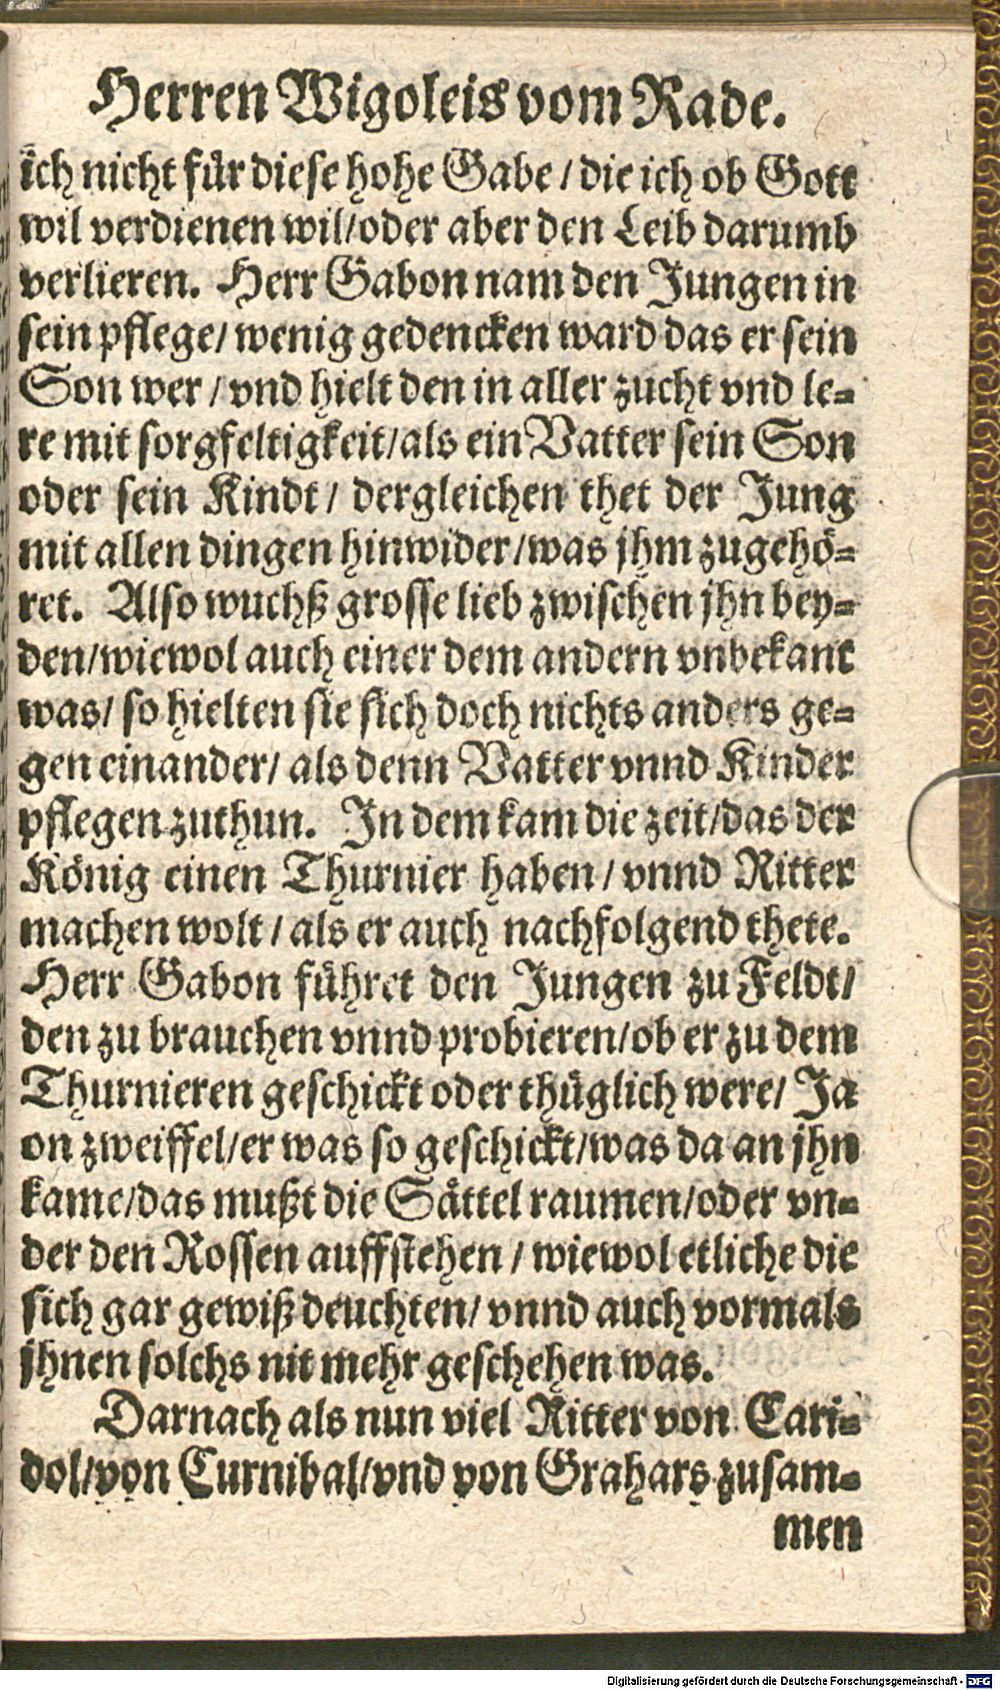 Herren Wigoleis vom Rade.
ich nicht für diese hohe Gabe / die ich ob Gott
wil verdienen wil/oder aber den Leib darumb
verlieren. Herr Gabon nam den Jungen in
sein pflege/ wenig gedencken ward das er sein
Son wer / vnd hielt den in aller zucht vnd le-
re mit sorgfeltigkeit/als ein Vatter sein Son
oder sein Kindt / dergleichen thet der Jung
mit allen dingen hinwider/was jhm zugehö-
ret. Also wuchß grosse lieb zwischen jhn bey-
den/wiewol auch einer dem andern vnbekant
was/ so hielten sie sich doch nichts anders ge-
gen einander/ als denn Vatter vnnd Kinder
pflegen zuthun. In dem kam die zeit/das der
König einen Thurnier haben / vnnd Ritter
machen wolt / als er auch nachfolgend thete.
Herr Gabon führet den Jungen zu Feldt/
den zu brauchen vnnd probieren/ob er zu dem
Thurnieren geschickt oder thüglich were/ Ja
on zweiffel/er was so geschickt/was da an jhn
kame/das mußt die Sättel raumen/oder vn-
der den Rossen auffstehen / wiewol etliche die
sich gar gewiß deuchten/ vnnd auch vormals
jhnen solchs nit mehr geschehen was.
Darnach als nun viel Ritter von Cari-
dol/von Curnibal/vnd von Grahars zusam-
men
Digitalisierung gefördert durch die Deutsche Forschungsgemeinschaft - DFG